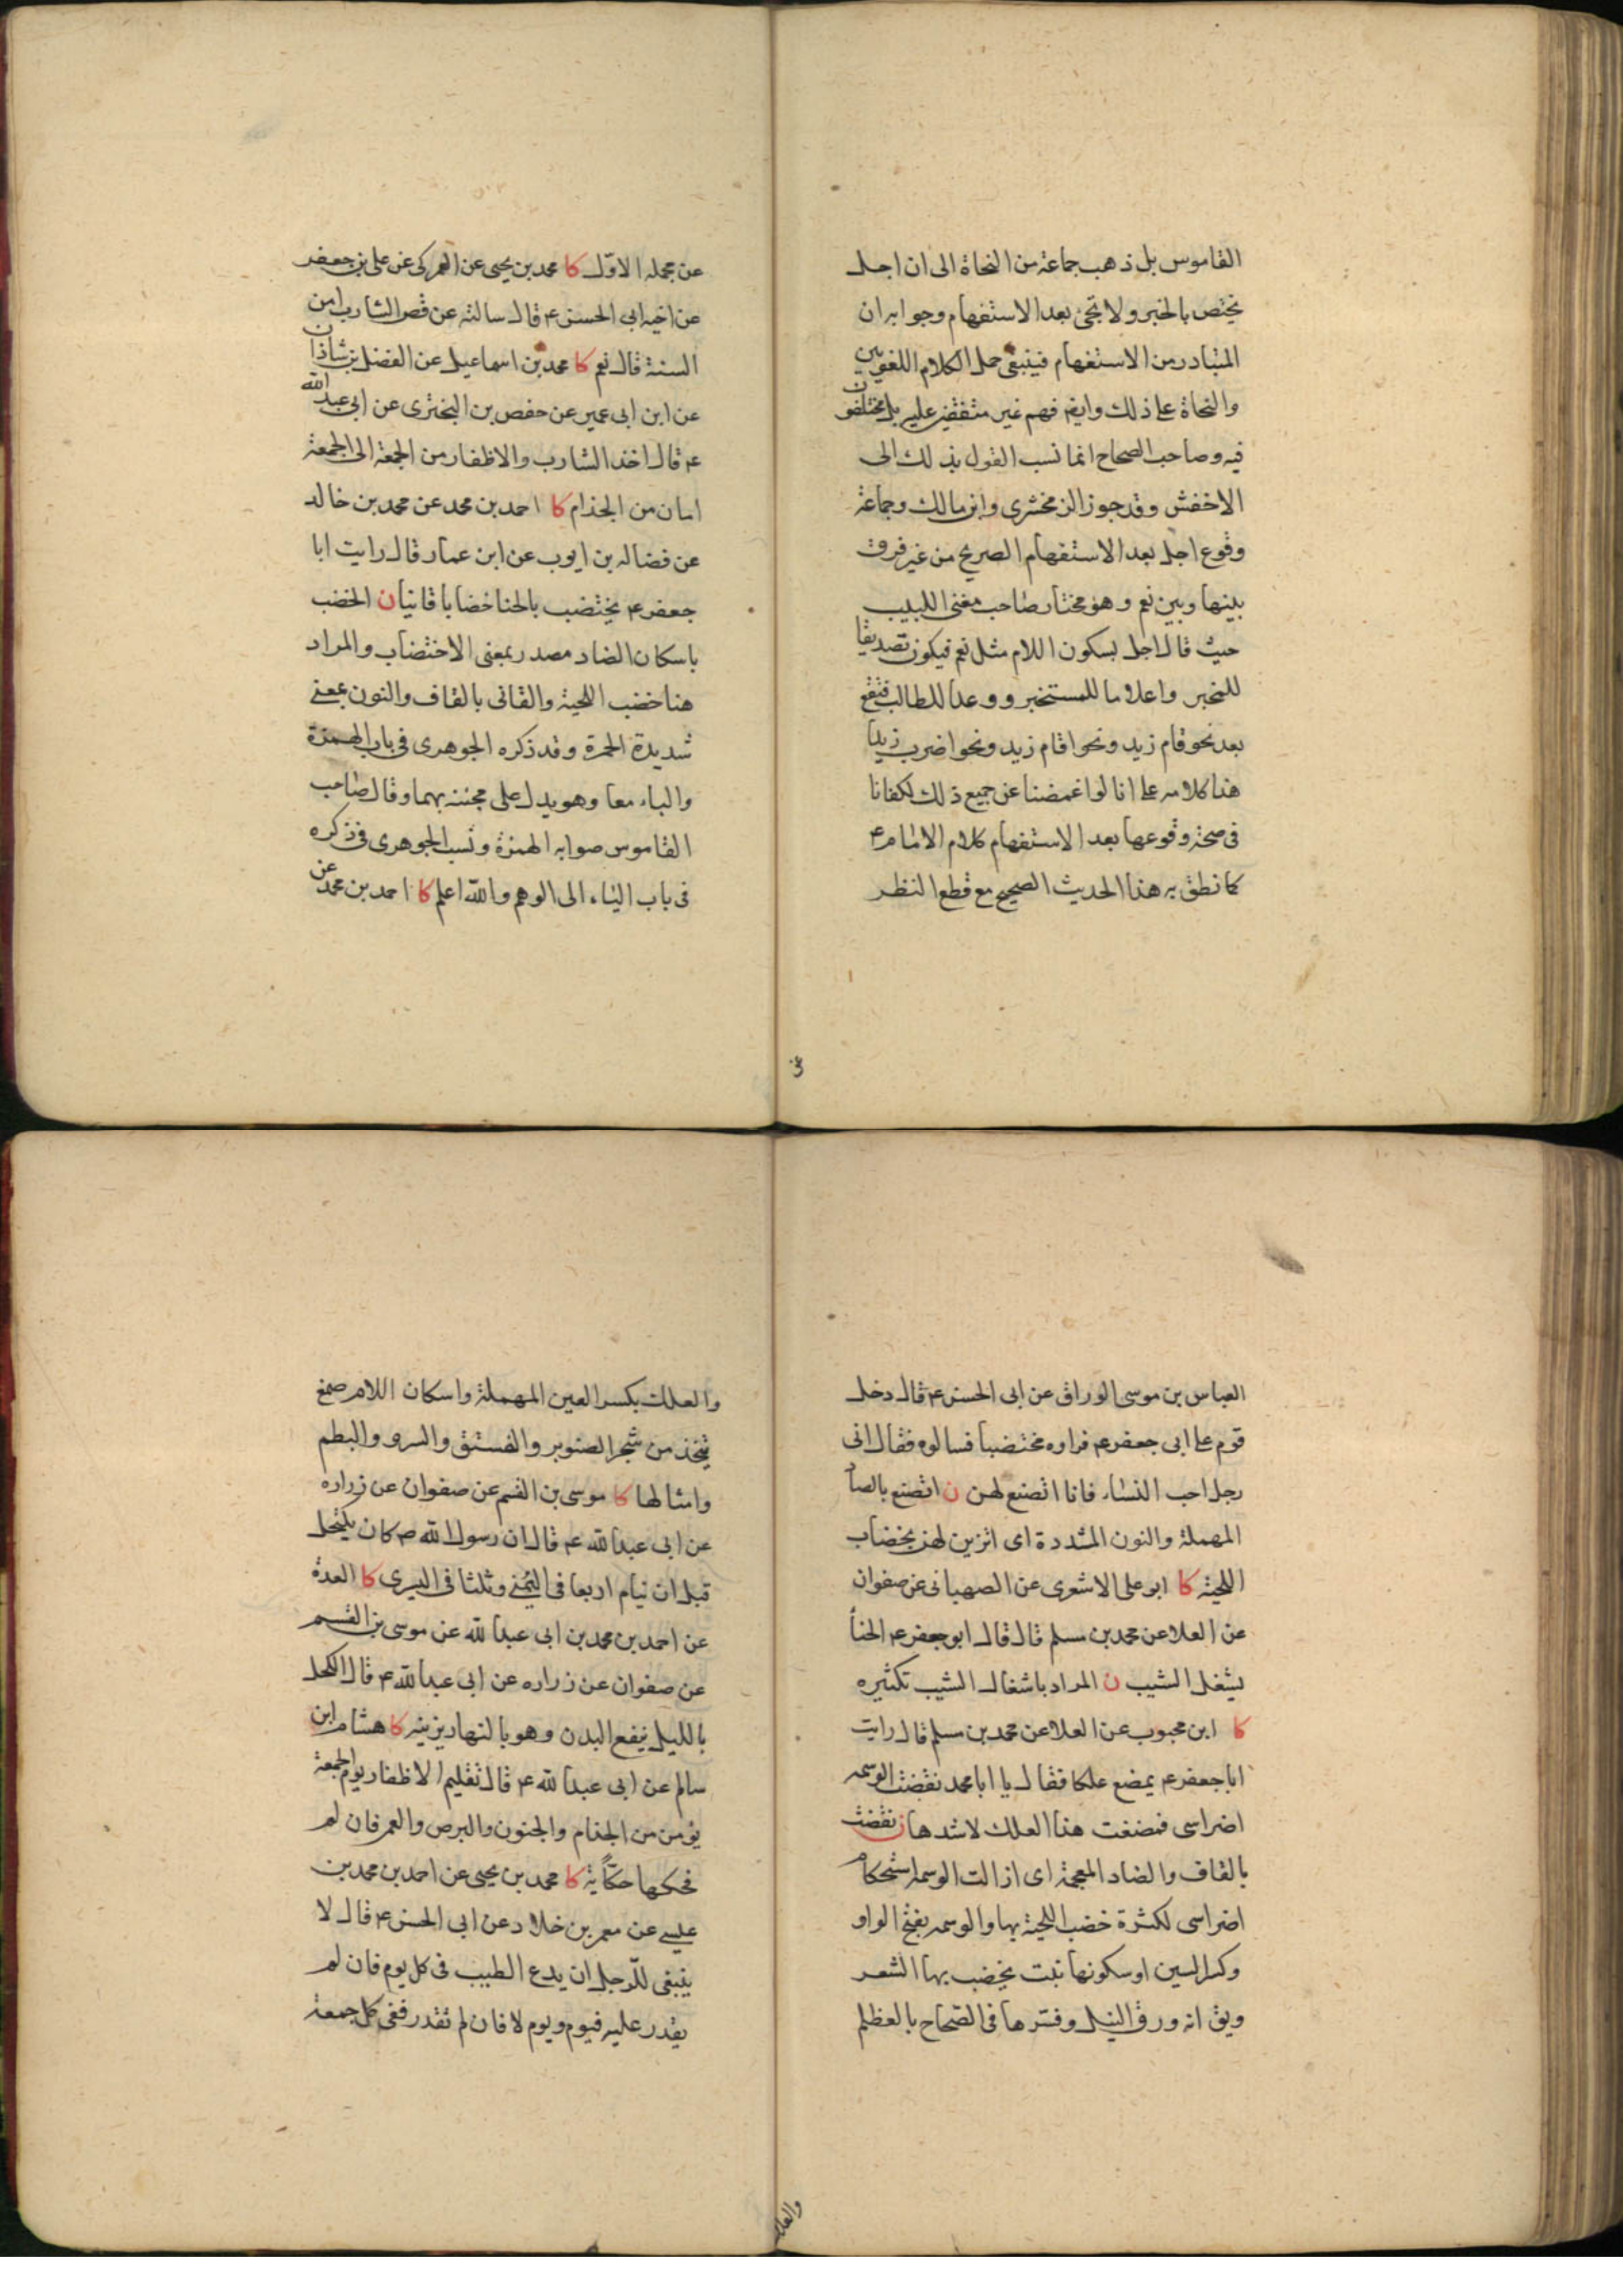 القاموس بل ذهب جماعة من النحاة الى ان اجل
يختص بالخبر ولا تجئ بعد الاستفهام وجوابه ان
المتبادر من الاستفهام فينبغى حمل الكلام اللغويين
والنحاة على ذلك وايضا فهم غير متفقين عليه بل مختلفون
فيه وصاحب الصحاح انما نسب القول بذلك الى
الاخفش وقد جوز الزمخشرى وابن مالك وجماعة
وقوع اجل بعد الاستفهام الصريح من غير فرق
بينها وبين نعم وهو مختار صاحب مغنى اللبيب
حيث قال اجل بسكون اللام مثل نعم فيكون تصديقا
للمخبر واعلاما للمستخبر ووعدا للطالب فتقع
بعد نحو قام زيد ونحو اقام زيد ونحو اضرب زيدا
هذا كلامه على انا لو اغمضنا عن جميع ذلك لكفانا
فى صحة وقوعها بعد الاستفهام كلام الامام ع
كما نطق به هذا الحديث الصحيح مع قطع النظر
عن
عن محمله الاوّل كا محمد بن يحيى عن العمركى عن على بن جعفر
عن اخيه ابى الحسن ع قال سالته عن قص الشارب امن
السنة قال نعم كا محمد بن اسماعيل عن الفضل بن شاذان
عن ابن ابى عمير عن حفص بن البخترى عن ابى عبد الله
ع قال اخذ الشارب والاظفار من الجمعة الى الجمعة
امان من الجذام كا احمد بن محمد عن محمد بن خالد
عن فضاله بن ايوب عن ابن عمار قال رايت ابا
جعفر ع يختضب بالحنا خضابا قانيا ن الخضب
باسكان الضاد مصدر بمعنى الاختضاب والمراد
هنا خضب اللحية والقانى بالقاف والنون بمعنى
شديدة الحمرة وقد ذكره الجوهرى فى باب الهمزة
والياء معا وهو يدل على مجيئه بهما وقال صاحب
القاموس صوابه الهمزة ونسب الجوهرى فى ذكره
فى باب الياء الى الوهم والله اعلم كا احمد بن محمد عن
العباس بن موسى الوراق عن ابى الحسن ع قال دخل
قوم على ابى جعفر ع فراوه مختضبا فسالوه فقال انى
رجل احب النساء فانا اتصنع لهن ن اتصنع بالصاد
المهملة والنون المشددة اى اتزين لهن بخضاب
اللحية كا ابو على الاشعرى عن الصهبانى عن صفوان
عن العلا عن محمد بن مسلم قال قال ابو جعفر ع الحنأ
يشغل الشيب ن المراد باشغال الشيب تكثيره
كا ابن محبوب عن العلا عن محمد بن مسلم قال رايت
ابا جعفر ع يمضع علكا فقال يا ابا محمد نقضت الوسمه
اضراسى فمضغت هذا العلك لاشدها ن نقضت
بالقاف والضاد المعجمة اى ازالت الوسمه استحكام
اضراسى لكثرة خضب اللحية بها والوسمه بفتح الواو
وكسر السين او سكونها نبت يخضب بها الشعر
ويق انه ورق النيل وفسّرها فى الصحاح بالعظلم
والعلك
والعلك بكسر العين المهملة واسكان اللام صمغ
يتخذ من شجر الصنوبر والفستق والسرو والبطم
وامثالها كا موسى بن القسم عن صفوان عن زراره
عن ابى عبد الله ع قال ان رسول الله ص كان يكتحل
قبل ان ينام اربعا فى اليُمنى وثلثا فى اليسرى كا العدة
عن احمد بن محمد بن ابى عبد الله عن موسى بن القسم
عن صفوان عن زراره عن ابى عبد الله ع قال الكحل
بالليل ينفع البدن وهو بالنهار يزينه كا هشام ابن
سالم عن ابى عبد الله ع قال تقليم الاظفار يوم الجمعة
يؤمن من الجذام والجنون والبرص والعمى فان لم
فحكها حكّا ية كا محمد بن يحيى عن احمد بن محمد بن
عليسى عن معمر بن خلاد عن ابى الحسن ع قال لا
ينبغى للرّجل ان يدع الطيب فى كل يوم فان لم
يقدر عليه فيوم ويوم لا فان لم تقدر ففى كل جمعة